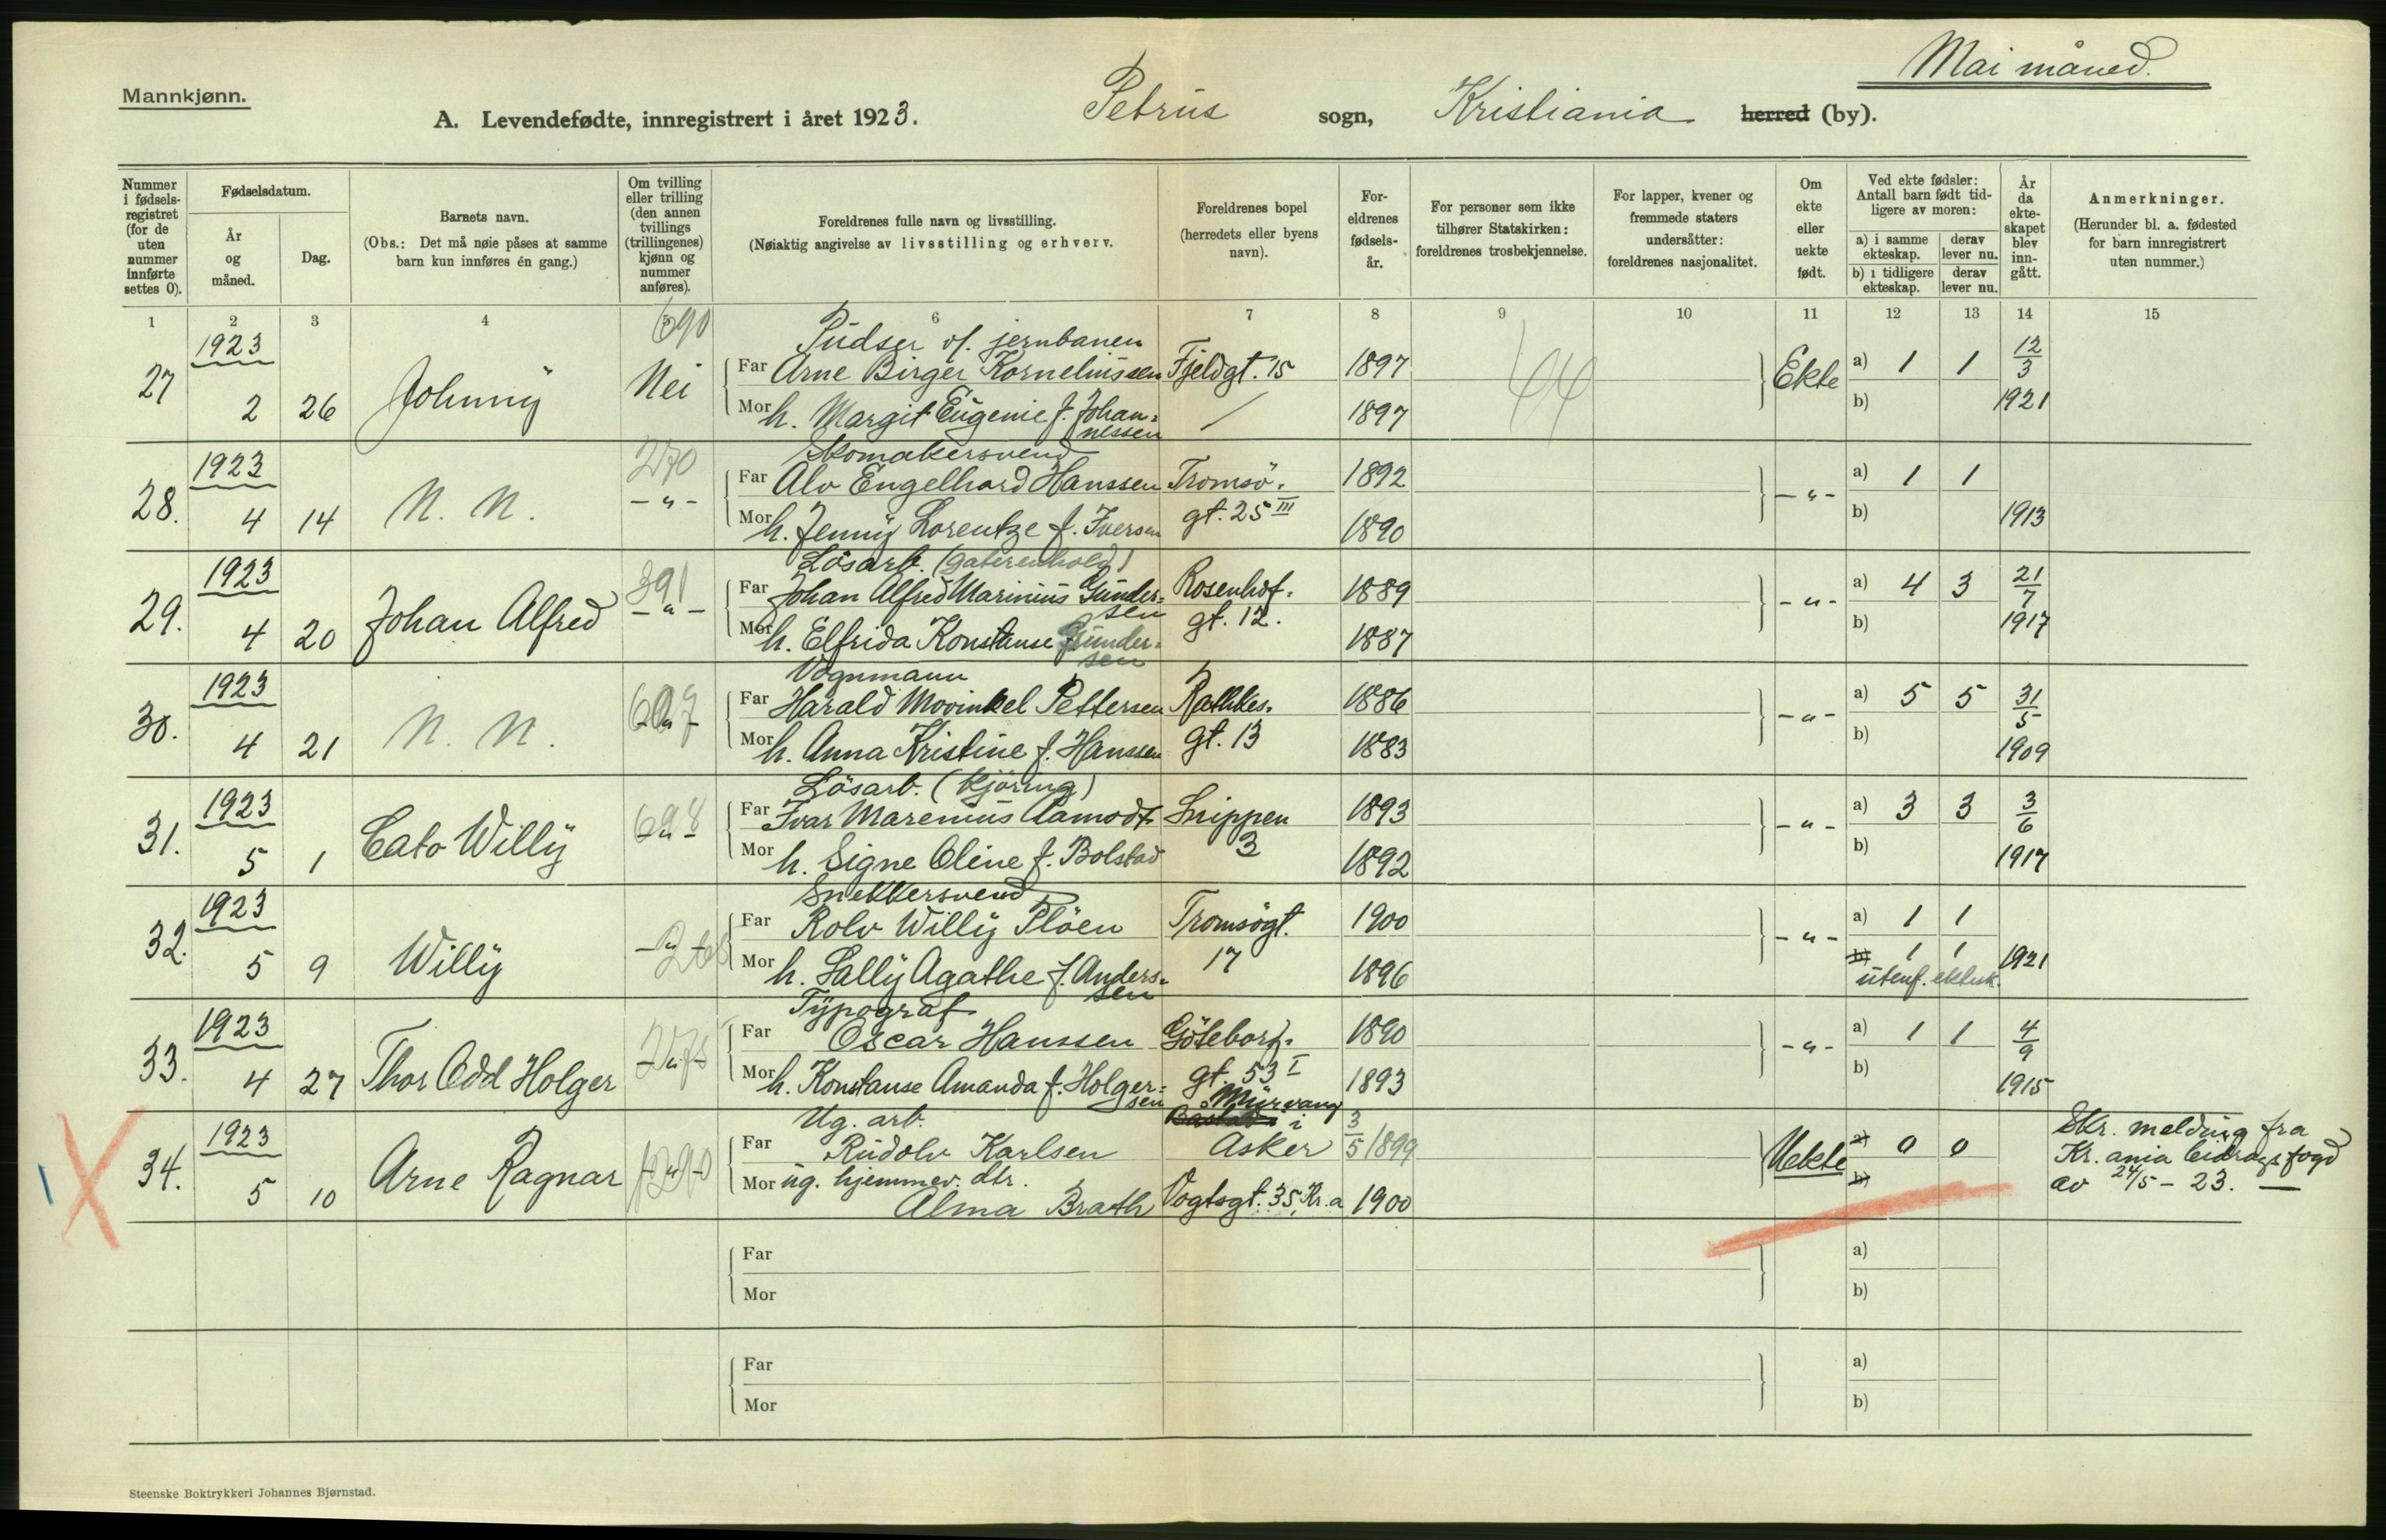 Mai måned.
Mannkjønn.
A. Levendefødte, innregistrert i året 1923. Petrus sogn, Kristiania herred (by).
Nummer i fødselsregistret (for de uten nummer innførte settes 0).
Fødselsdatum.
År og måned.
Dag.
Barnets navn.
(Obs.: Det må nøie påses at samme barn kun innføres én gang.)
Om tvilling eller trilling (den annen tvillings (trillingenes) kjønn og nummer anføres).
Foreldrenes fulle navn og livsstilling.
(Nøiaktig angivelse av livsstilling og erhverv.
Foreldrenes bopel (herredets eller byens navn).
Foreldrenes fødselsår.
For personer som ikke tilhører Statskirken: foreldrenes trosbekjennelse.
For lapper, kvener og fremmede staters undersåtter: foreldrenes nasjonalitet.
Om ekte eller uekte født.
Ved ekte fødsler: Antall barn født tidligere av moren:
a) i samme ekteskap. derav lever nu.
b) i tidligere ekteskap. derav lever nu.
År da ekteskapet blev inngått.
Anmerkninger.
(Herunder bl. a. fødested for barn innregistrert uten nummer.)
1 2 3 4 5 6 7 8 9 10 11 12 13 14 15
690 Pudser v/. jernbanen
1923 Far Arne Birger Korneliussen Fjeldgt. 15 1897 44 a) 1 1 12/3
27 2 26 Johnny Nei Mor h. Margit Eugenie f. Johannessen / 1897 Ekte b) 1921
270 Skomakersvend
1923 Far Alv Engelhard Hanssen Tromsö- 1892 a) 1 1
28. 4 14 N. N. - " - Mor h. Jenny Lorentze f. Iversen gt. 25 III 1890 - " - b) 1913
391 Lösarb. (gaterenhold)
1923 Far Johan Alfred Marinius Gundersen Rosenhof- 1889 a) 4 3 21/7
29. 4 20 Johan Alfred - " - Mor h. Elfrida Konstanse Gundersen gt. 12. 1887 - " - b) 1917
Vognmann
1923 Far Harald Movinkel Pettersen Rathkes- 1886 a) 5 5 31/5
30. 4 21 N. N. - " - Mor h. Anna Kristine f. Hanssen gt. 13 1883 - " - b) 1909
698 Lösarb. (kjöring)
1923 Far Ivar Marenius Aamodt Snippen 1893 a) 3 3 3/6
31. 5 1 Cato Willy - " - Mor h. Signe Oline f. Bolstad 3 1892 - " - b) 1917
Snekkersvend
1923 Far Rolv Willy Plöen Tromsögt. 1900 a) 1 1
32. 5 9 Willy - " - Mor h. Sally Agathe f. Anderssen 17 1896 - " - b) 1 1 1921
utenf. ektesk.
Typograf
1923 Far Oscar Hanssen Göteborg- 1890 a) 1 1 4/9
33. 4 27 Thor Odd Holger - " - Mor h. Konstanse Amanda f. Holgersen gt. 53 I 1893 - " - b) 1915
Ug. arb. i
1923 Far Rudolv Karlsen Asker 3/5 1899 a) 0 0 Skr. melding fra
34. 5 10 Arne Ragnar - " - Mor ug. hjemmev. dtr. Uekte b) Kr.ania bidragsfogd
Alma Brath Vogtsgt. 35, Kr.a 1900 av 24/5 - 23. —
Far a)
Mor b)
Far a)
Mor b)
Steenske Boktrykkeri Johannes Bjørnstad.